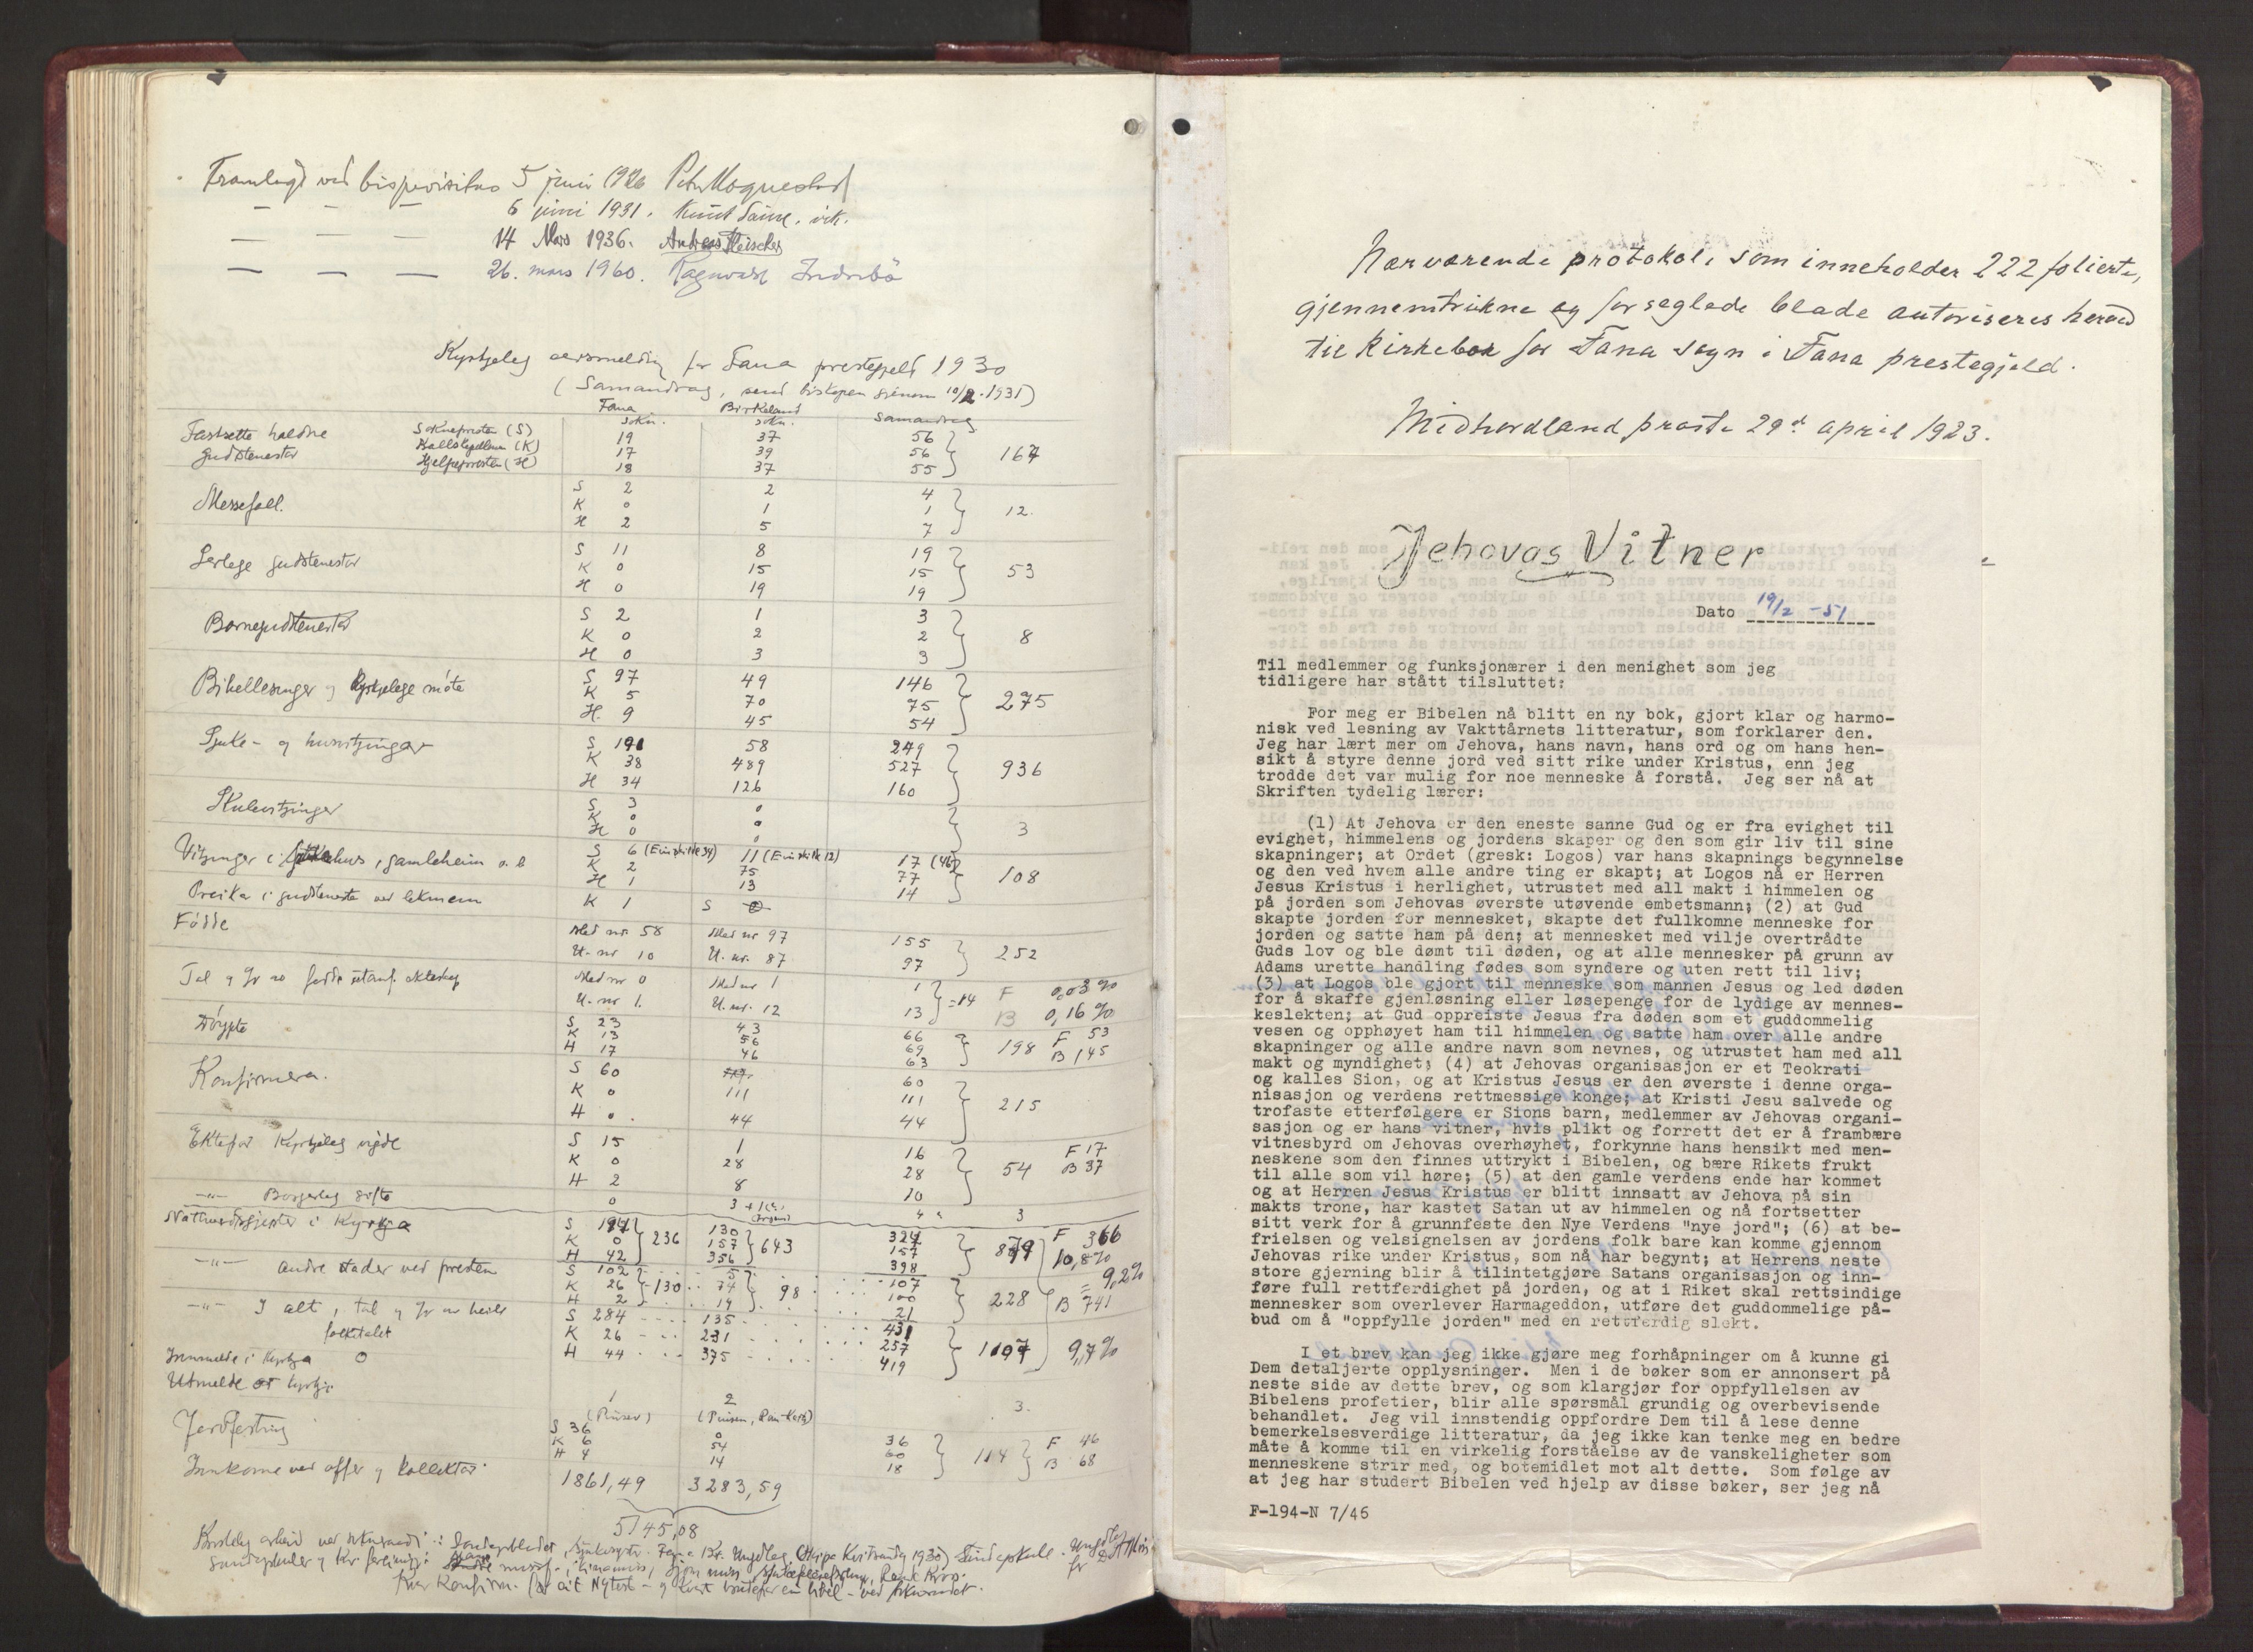 Framlagt ved bispevisitas 5 juni 1926 Peter Hognestad
— — — 6 juni 1931.
— — — 14 Mars 1936. Andreas Fleischer
— — — 26. mars 1960. Ragnvald Indrebö
Kyrkjeleg aarsmelding for Fana prestegjeld 1930
(Samandrag, send biskopen 10/2. 1931)
Fana sokn. Birkeland sokn. Samandrag
Fastsette haldne gudstenester
Soknepresten (S) 19 37 56
Kallskapellanen (K) 17 39 56 } 167
Hjelpepresten (H) 18 37 55
Messefall. S 2 2 4
K 0 1 1 } 12.
H 2 5 7
Serlege gudstenester S 11 8 19
K 0 15 15 } 53
H 0 19 19
Barnegudstenester S 2 1 3
K 0 2 2 } 8
H 0 3 3
Bibellesingar og kyrkjelege möte S 97 49 146
K 5 70 75 } 275
H. 9 45 54
Sjuke- og husvitjingar S 191 58 249
K 38 489 527 } 936
H 34 126 160
Skulevitjingar S 3 0
K 0 0 } 3
H 0 0
Vitjingar i sjukehus, gamleheim o. l S 6 11 17
K 2 75 77 } 108
H 1 13 14
Preika i gudstenesta ved lekmenn K 1 S 0
Födde Med nr. 58 Med nr 97 155 } 252
U. nr 10 U. nr. 87 97
Tal og % födde utanf. ekteskap Med nr 0 Med nr 1 1 } = 14 F 0,03 %
U. nr 1. U. nr. 12 13 B 0,16 %
Döypte S 23 43 66
K 13 56 69 } 198 F 53
H 17 46 63 B 145
Konfirmera. S 60 60
K 0 111 111 } 215
H 0. 44 44
Ektepar Kyrkjeleg vigde S 15 1 16 F 17
K 0 28 28 } 54 B 37
H 2 8 10
—"— Borgarleg gifte 0 3 3
Nattverdsgjester i Kyrkja S 194 130 324 F 366
K 0 } 236 157 } 643 157 } 879 10,8 %
H 42 356 398
—"— andre stader ved presten S 102 5 107 = 9,2 %
K 26 } 130 74 } 98 100 } 228 B 741
H 2 19 21
—"— I alt, tal og % av heile folketalet S 284 135 431
K 26 231 257 } 1107 9,7 %
H 44 375 419
Innmelde i Kyrkja 0
Utmelde or kyrkja 1 2 3.
(Pinsev) (Pinsev, Rom-Kat)
Jordfesting S 36 0 36 F 46
K 6 54 60 } 114 } B 68
H 4 14 18
Innkome ved offer og kollektar 1861,49 3283,59
5145,08
Nærværende protokol, som inneholder 222 folierte,
gjennemtrukne og forseglede blade autoriseres herved
til Kirkebok for Fana sogn i Fana prestegjeld.
Midhordland prosti 29de april 1923.
Jehovas Vitner
Dato 19/2 -51
Til medlemmer og funksjonærer i den menighet som jeg
tidligere har stått tilsluttet:
For meg er Bibelen nå blitt en ny bok, gjort klar og harmo-
nisk ved lesning av Vakttårnets litteratur, som forklarer den.
Jeg har lært mer om Jehova, hans navn, hans ord og om hans hen-
sikt å styre denne jord ved sitt rike under Kristus, enn jeg
trodde det var mulig for noe menneske å forstå. Jeg ser nå at
Skriften tydelig lærer:
(1) At Jehova er den eneste sanne Gud og er fra evighet til
evighet, himmelens og jordens skaper og den som gir liv til sine
skapninger; at Ordet (gresk: Logos) var hans skapnings begynnelse
og den ved hvem alle andre ting er skapt; at Logos nå er Herren
Jesus Kristus i herlighet, utrustet med all makt i himmelen og
på jorden som Jehovas øverste utøvende embetsmann; (2) at Gud
skapte jorden for mennesket, skapte det fullkomne menneske for
jorden og satte ham på den; at mennesket med vilje overtrådte
Guds lov og ble dømt til døden, og at alle mennesker på grunn av
Adams urette handling fødes som syndere og uten rett til liv;
(3) at Logos ble gjort til menneske som mannen Jesus og led døden
for å skaffe gjenløsning eller løsepenge for de lydige av mennes-
keslekten; at Gud oppreiste Jesus fra døden som et guddommelig
vesen og opphøyet ham til himmelen og satte ham over alle andre
skapninger og alle andre navn som nevnes, og utrustet ham med all
makt og myndighet; (4) at Jehovas organisasjon er et Teokrati
og kalles Sion, og at Kristus Jesus er den øverste i denne orga-
nisasjon og verdens rettmessige konge; at Kristi Jesu salvede og
trofaste etterfølgere er Sions barn, medlemmer av Jehovas organi-
sasjon og er hans vitner, hvis plikt og forrett det er å frambære
vitnesbyrd om Jehovas overhøyhet, forkynne hans hensikt med men-
neskene som den finnes uttrykt i Bibelen, og bære Rikets frukt
til alle som vil høre; (5) at den gamle verdens ende har kommet
og at Herren Jesus Kristus er blitt innsatt av Jehova på sin
makts trone, har kastet Satan ut av himmelen og nå fortsetter
sitt verk for å grunnfeste den Nye Verdens "nye jord"; (6) at be-
frielsen og velsignelsen av jordens folk bare kan komme gjennom
Jehovas rike under Kristus, som nå har begynt; at Herrens neste
store gjerning blir å tilintetgjøre Satans organisasjon og inn-
føre full rettferdighet på jorden, og at i Riket skal rettsindige
mennesker som overlever Harmageddon, utføre det guddommelige på-
bud om å "oppfylle jorden" med en rettferdig slekt.
I et brev kan jeg ikke gjøre meg forhåpninger om å kunne gi
Dem detaljerte opplysninger. Men i de bøker som er annonsert på
neste side av dette brev, og som klargjør for oppfyllelsen av
Bibelens profetier, blir alle spørsmål grundig og overbevisende
behandlet. Jeg vil innstendig oppfordre Dem til å lese denne
bemerkelsesverdige litteratur, da jeg ikke kan tenke meg en bedre
måte å komme til en virkelig forståelse av de vanskeligheter som
menneskene strir med, og botemidlet mot alt dette. Som følge av
at jeg har studert Bibelen ved hjelp av disse bøker, ser jeg nå
F-194-N 7/46